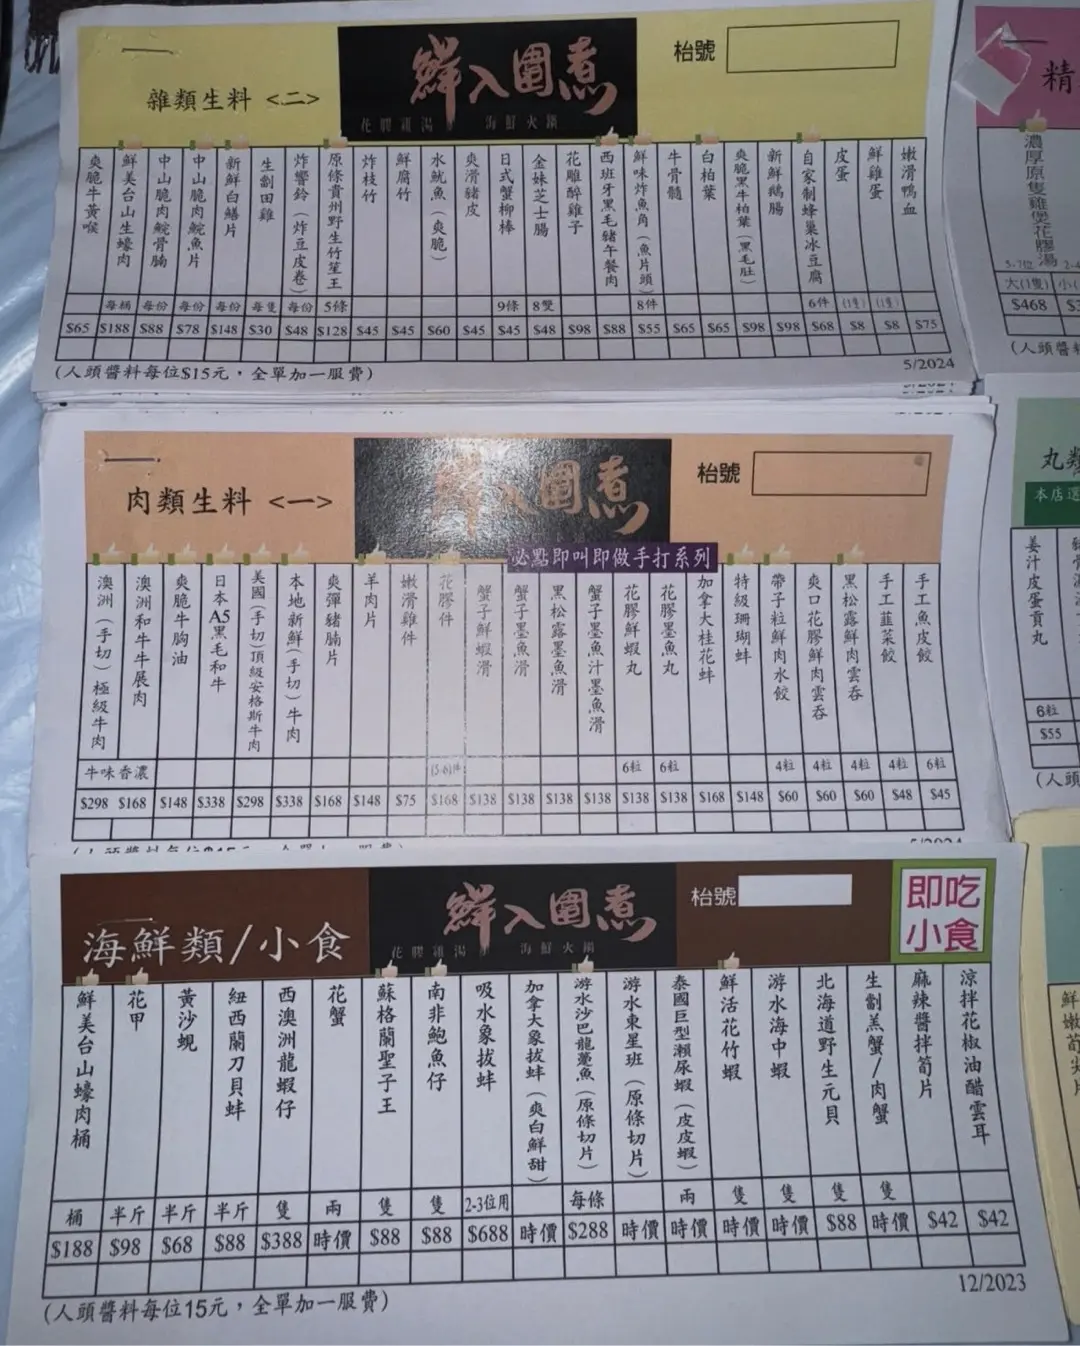 雜類生料 <二>
鮮入圍煮
花膠雞湯 海鮮火鍋
枱號
爽脆牛黃喉 $65
鮮美台山生蠔肉 每桶 $188
中山脆肉鯇骨腩 每份 $88
中山脆肉鯇魚片 每份 $78
新鮮白鱔片 每份 $148
生劏田雞 每隻 $30
炸響鈴（炸豆皮卷） 每份 $48
原條貴州野生竹笙王 5條 $128
炸枝竹 $45
鮮腐竹 $45
水魷魚（爽脆） $60
爽滑豬皮 $45
日式蟹柳棒 9條 $45
金妹芝士腸 8雙 $48
花雕醉雞子 $98
西班牙黑毛豬午餐肉 $88
鮮味炸魚角（魚片頭） 8件 $55
牛骨髓 $65
白柏葉 $65
爽脆黑牛柏葉（黑毛肚） $98
新鮮鵝腸 $98
自家制蜂巢冰豆腐 6件 $68
皮蛋 (1隻) $8
鮮雞蛋 (1隻) $8
嫩滑鴨血 $75
(人頭醬料每位$15元，全單加一服費)
5/2024
肉類生料 <一>
鮮入圍煮
枱號
必點即叫即做手打系列
澳洲（手切）極級牛肉 $298
澳洲和牛牛展肉 $168
牛味香濃
爽脆牛胸油 $148
日本A5黑毛和牛 $338
美國（手切）頂級安格斯牛肉 $298
本地新鮮（手切）牛肉 $338
爽彈豬腩片 $168
羊肉片 $148
嫩滑雞件 $75
花膠件 (5-6)件 $168
蟹子鮮蝦滑 $138
蟹子墨魚滑 $138
黑松露墨魚滑 $138
蟹子墨魚汁墨魚滑 $138
花膠鮮蝦丸 6粒 $138
花膠墨魚丸 6粒 $138
加拿大桂花蚌 $168
特級珊瑚蚌 $148
帶子粒鮮肉水餃 4粒 $60
爽口花膠鮮肉雲吞 4粒 $60
黑松露鮮肉雲吞 4粒 $60
手工韮菜餃 4粒 $48
手工魚皮餃 6粒 $45
海鮮類/小食
鮮入圍煮
花膠雞湯 海鮮火鍋
枱號
即吃
小食
鮮美台山蠔肉桶 桶 $188
花甲 半斤 $98
黃沙蜆 半斤 $68
紐西蘭刀貝蚌 半斤 $88
西澳洲龍蝦仔 隻 $388
花蟹 兩 時價
蘇格蘭聖子王 隻 $88
南非鮑魚仔 隻 $88
吸水象拔蚌 2-3位用 $688
加拿大象拔蚌（爽白鮮甜） 時價
游水沙巴龍躉魚（原條切片） 每條 $288
游水東星班（原條切片） 時價
泰國巨型瀨尿蝦（皮皮蝦） 兩 時價
鮮活花竹蝦 隻 時價
游水海中蝦 隻 時價
北海道野生元貝 隻 $88
生劏羔蟹/肉蟹 隻 時價
麻辣醬拌筍片 $42
涼拌花椒油醋雲耳 $42
(人頭醬料每位15元，全單加一服費)
12/2023
精
濃厚原隻雞煲花膠湯
5-7位
大(1隻)
$468
(人頭醬料
丸類
本店選
姜汁皮蛋貢丸
6粒
$55
(人頭
鮮嫩筍尖片